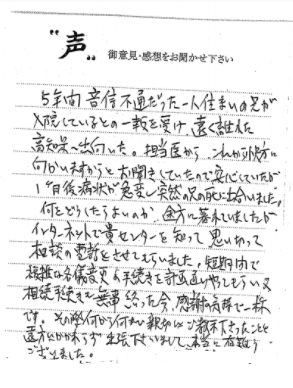 "声" 御意見・感想をお聞かせ下さい
5年間音信不通だった一人住まいの兄が
入院しているとの一報を受け、遠く離れた
高知県へ出向いた。担当医から、これから快方に
向かいますからとお聞きしていたので安心していたが
1ヶ日後病状が急変し突然兄の死に出合いました。
何をどうしたらよいのか、途方に暮れていましたが
インターネットで貴センターを知って思い切って
相談の電話をさせてもらいました。短期間で
名儀変更の手続きを計画通りやしてもらい又
相続手続きを無事終った今、感謝の気持で一杯
です。その際何から何まで親切にご教示下さったこと
遠方にかかわらず 下さいまして、本当に有難う
ございました。